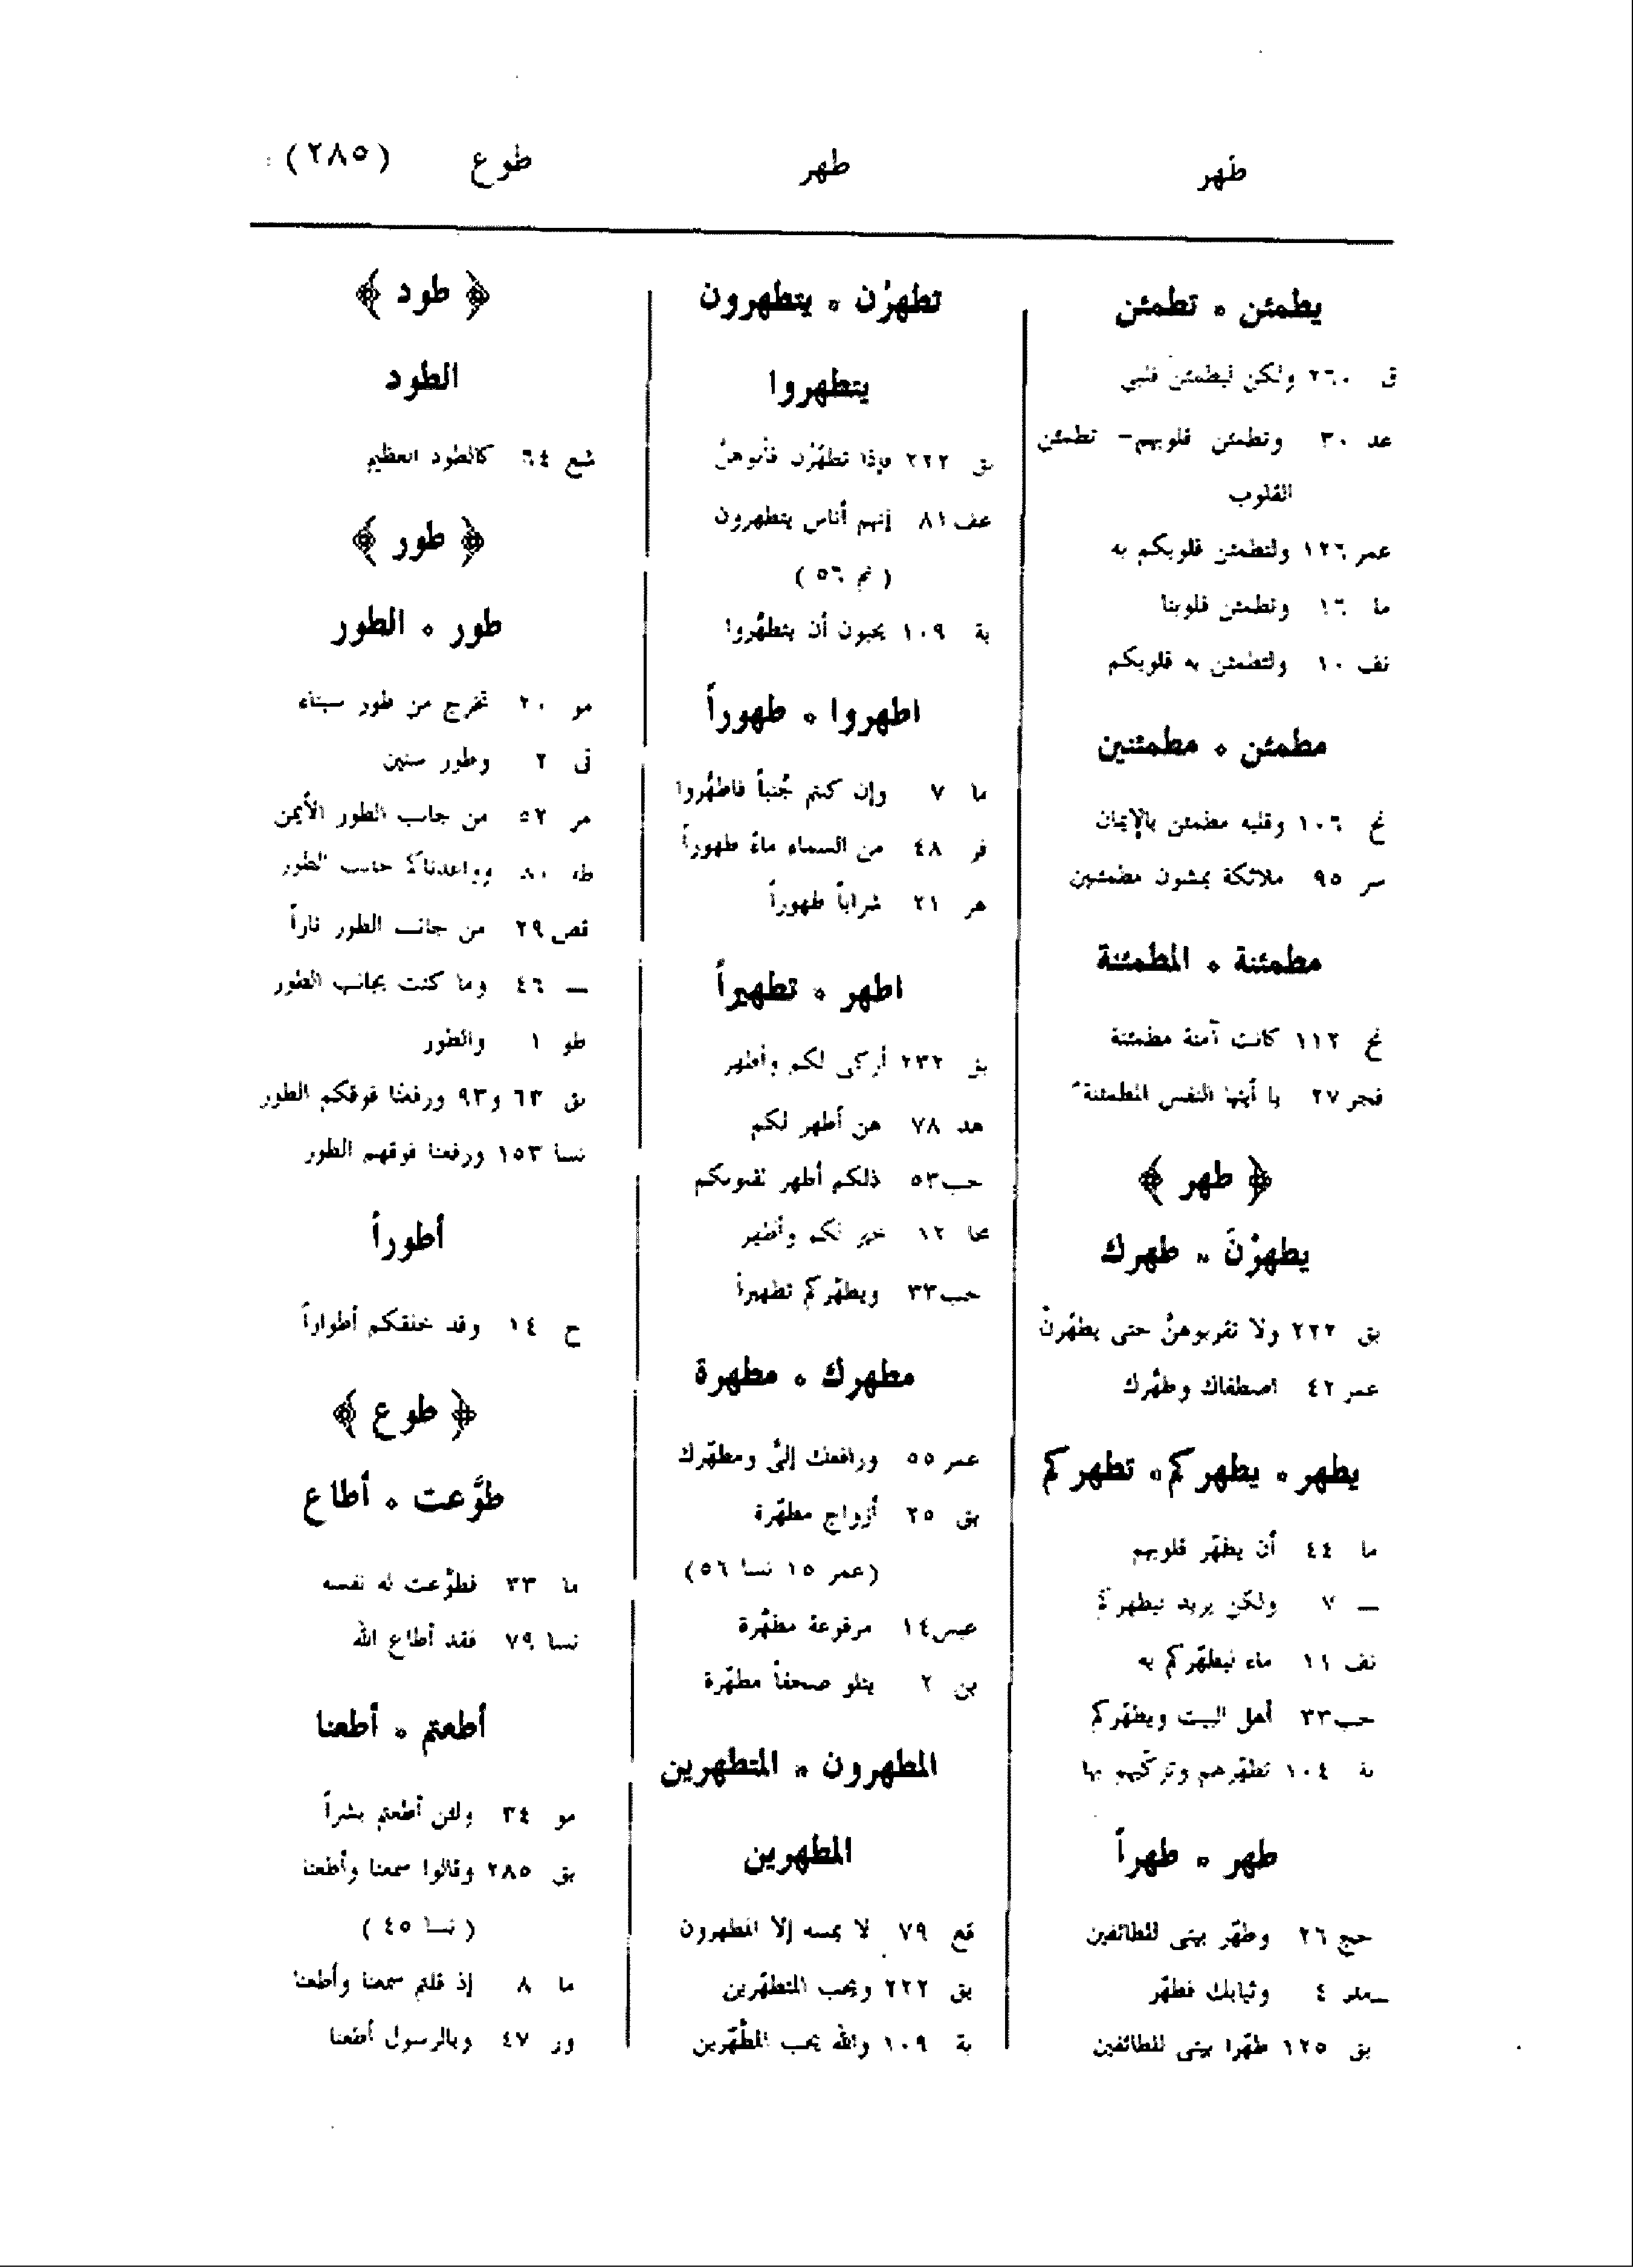 طهر
طهر
طوع
(٢٨٥)
يطمئن * تطمئن
ق ٢٦٠ ولكن ليطمئن قلبي
عد ٣٠ وتطمئن قلوبهم - تطمئن
القلوب
عمر ١٢٦ ولتطمئن قلوبكم به
ما ١٦ وتطمئن قلوبنا
نف ١٠ ولتطمئن به قلوبكم
مطمئن * مطمئنين
نح ١٠٦ وقلبه مطمئن بالإيمان
سر ٩٥ ملائكة يمشون مطمئنين
مطمئنة * المطمئنة
نح ١١٢ كانت آمنة مطمئنة
فجر ٢٧ يا أيتها النفس المطمئنة
﴿ طهر ﴾
يطهرْنَ * طهرك
بق ٢٢٢ ولا تقربوهنَّ حتى يطهُرنْ
عمر ٤٢ اصطفاك وطهَّرك
يطهر * يطهركم * تطهركم
ما ٤٤ أن يطهّر قلوبهم
— ٧ ولكن يريد ليطهركم
نف ١١ ماء ليطهّركم به
حب ٣٣ أهل البيت ويطهّركم
بة ١٠٤ تطهّرهم وتزكّيهم بها
طهر * طهراً
حج ٢٦ وطهّر بيتى للطائفين
مد ٤ وثيابك فطهّر
بق ١٢٥ طهّرا بيتى للطائفين
تطهرْن * يتطهرون
يتطهروا
بق ٢٢٢ فإذا تطهّرْن فأتوهنَّ
عف ٨١ إنهم أناس يتطهرون
( نم ٥٦ )
بة ١٠٩ يحبون أن يتطهَّروا
اطهروا * طهوراً
ما ٧ وإن كنتم جُنباً فاطهَّروا
فر ٤٨ من السماء ماءً طهوراً
هر ٢١ شراباً طهوراً
اطهر * تطهيراً
بق ٢٣٢ أزكى لكم وأطهر
هد ٧٨ هن أطهر لكم
حب ٥٣ ذلكم أطهر لقلوبكم
مجا ١٢ خير لكم وأطهر
حب ٣٣ ويطهّركم تطهيراً
مطهرك * مطهرة
عمر ٥٥ ورافعك إلىَّ ومطهّرك
بق ٢٥ أزواج مطهّرة
(عمر ١٥ نسا ٥٦)
عبس ١٤ مرفوعة مطهَّرة
بن ٢ يتلو صحفاً مطهّرة
المطهرون * المتطهرين
المطهرين
قع ٧٩ لا يمسه إلّا المطهرون
بق ٢٢٢ ويحب المتطهّرين
بة ١٠٩ والله يحب المطَّهّرين
﴿ طود ﴾
الطود
شع ٦٤ كالطود العظيم
﴿ طور ﴾
طور * الطور
مو ٢٠ تخرج من طور سيناء
تى ٢ وطور سنين
مر ٥٢ من جانب الطور الأيمن
طه ٨٠ وواعدناكم جانب الطور
قص ٢٩ من جانب الطور ناراً
— ٤٦ وما كنت بجانب الطور
طو ١ والطور
بق ٦٣ و٩٣ ورفعنا فوقكم الطور
نسا ١٥٣ ورفعنا فوقهم الطور
أطوراً
ح ١٤ وقد خلقكم أطواراً
﴿ طوع ﴾
طوَّعت * أطاع
ما ٣٣ فطوَّعت له نفسه
نسا ٧٩ فقد أطاع الله
أطعتم * أطعنا
مو ٣٤ ولئن أطعتم بشراً
بق ٢٨٥ وقالوا سمعنا وأطعنا
( نسا ٤٥ )
ما ٨ إذ قلتم سمعنا وأطعنا
ور ٤٧ وبالرسول أطعنا